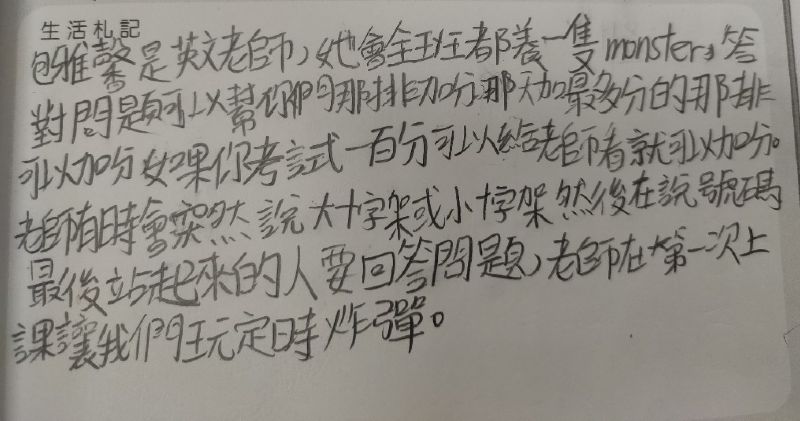 生活札記
鮑雅馨是英文老師，她會全班都養一隻monster，答
對問題可以幫你們那排加分那天加最多分的那排
可以加分如果你考試一百分可以給老師看就可以加分。
老師有時會突然說大十字架或小十字架然後在說號碼
最後站起來的人要回答問題，老師在第一次上
課讓我們玩定時炸彈。